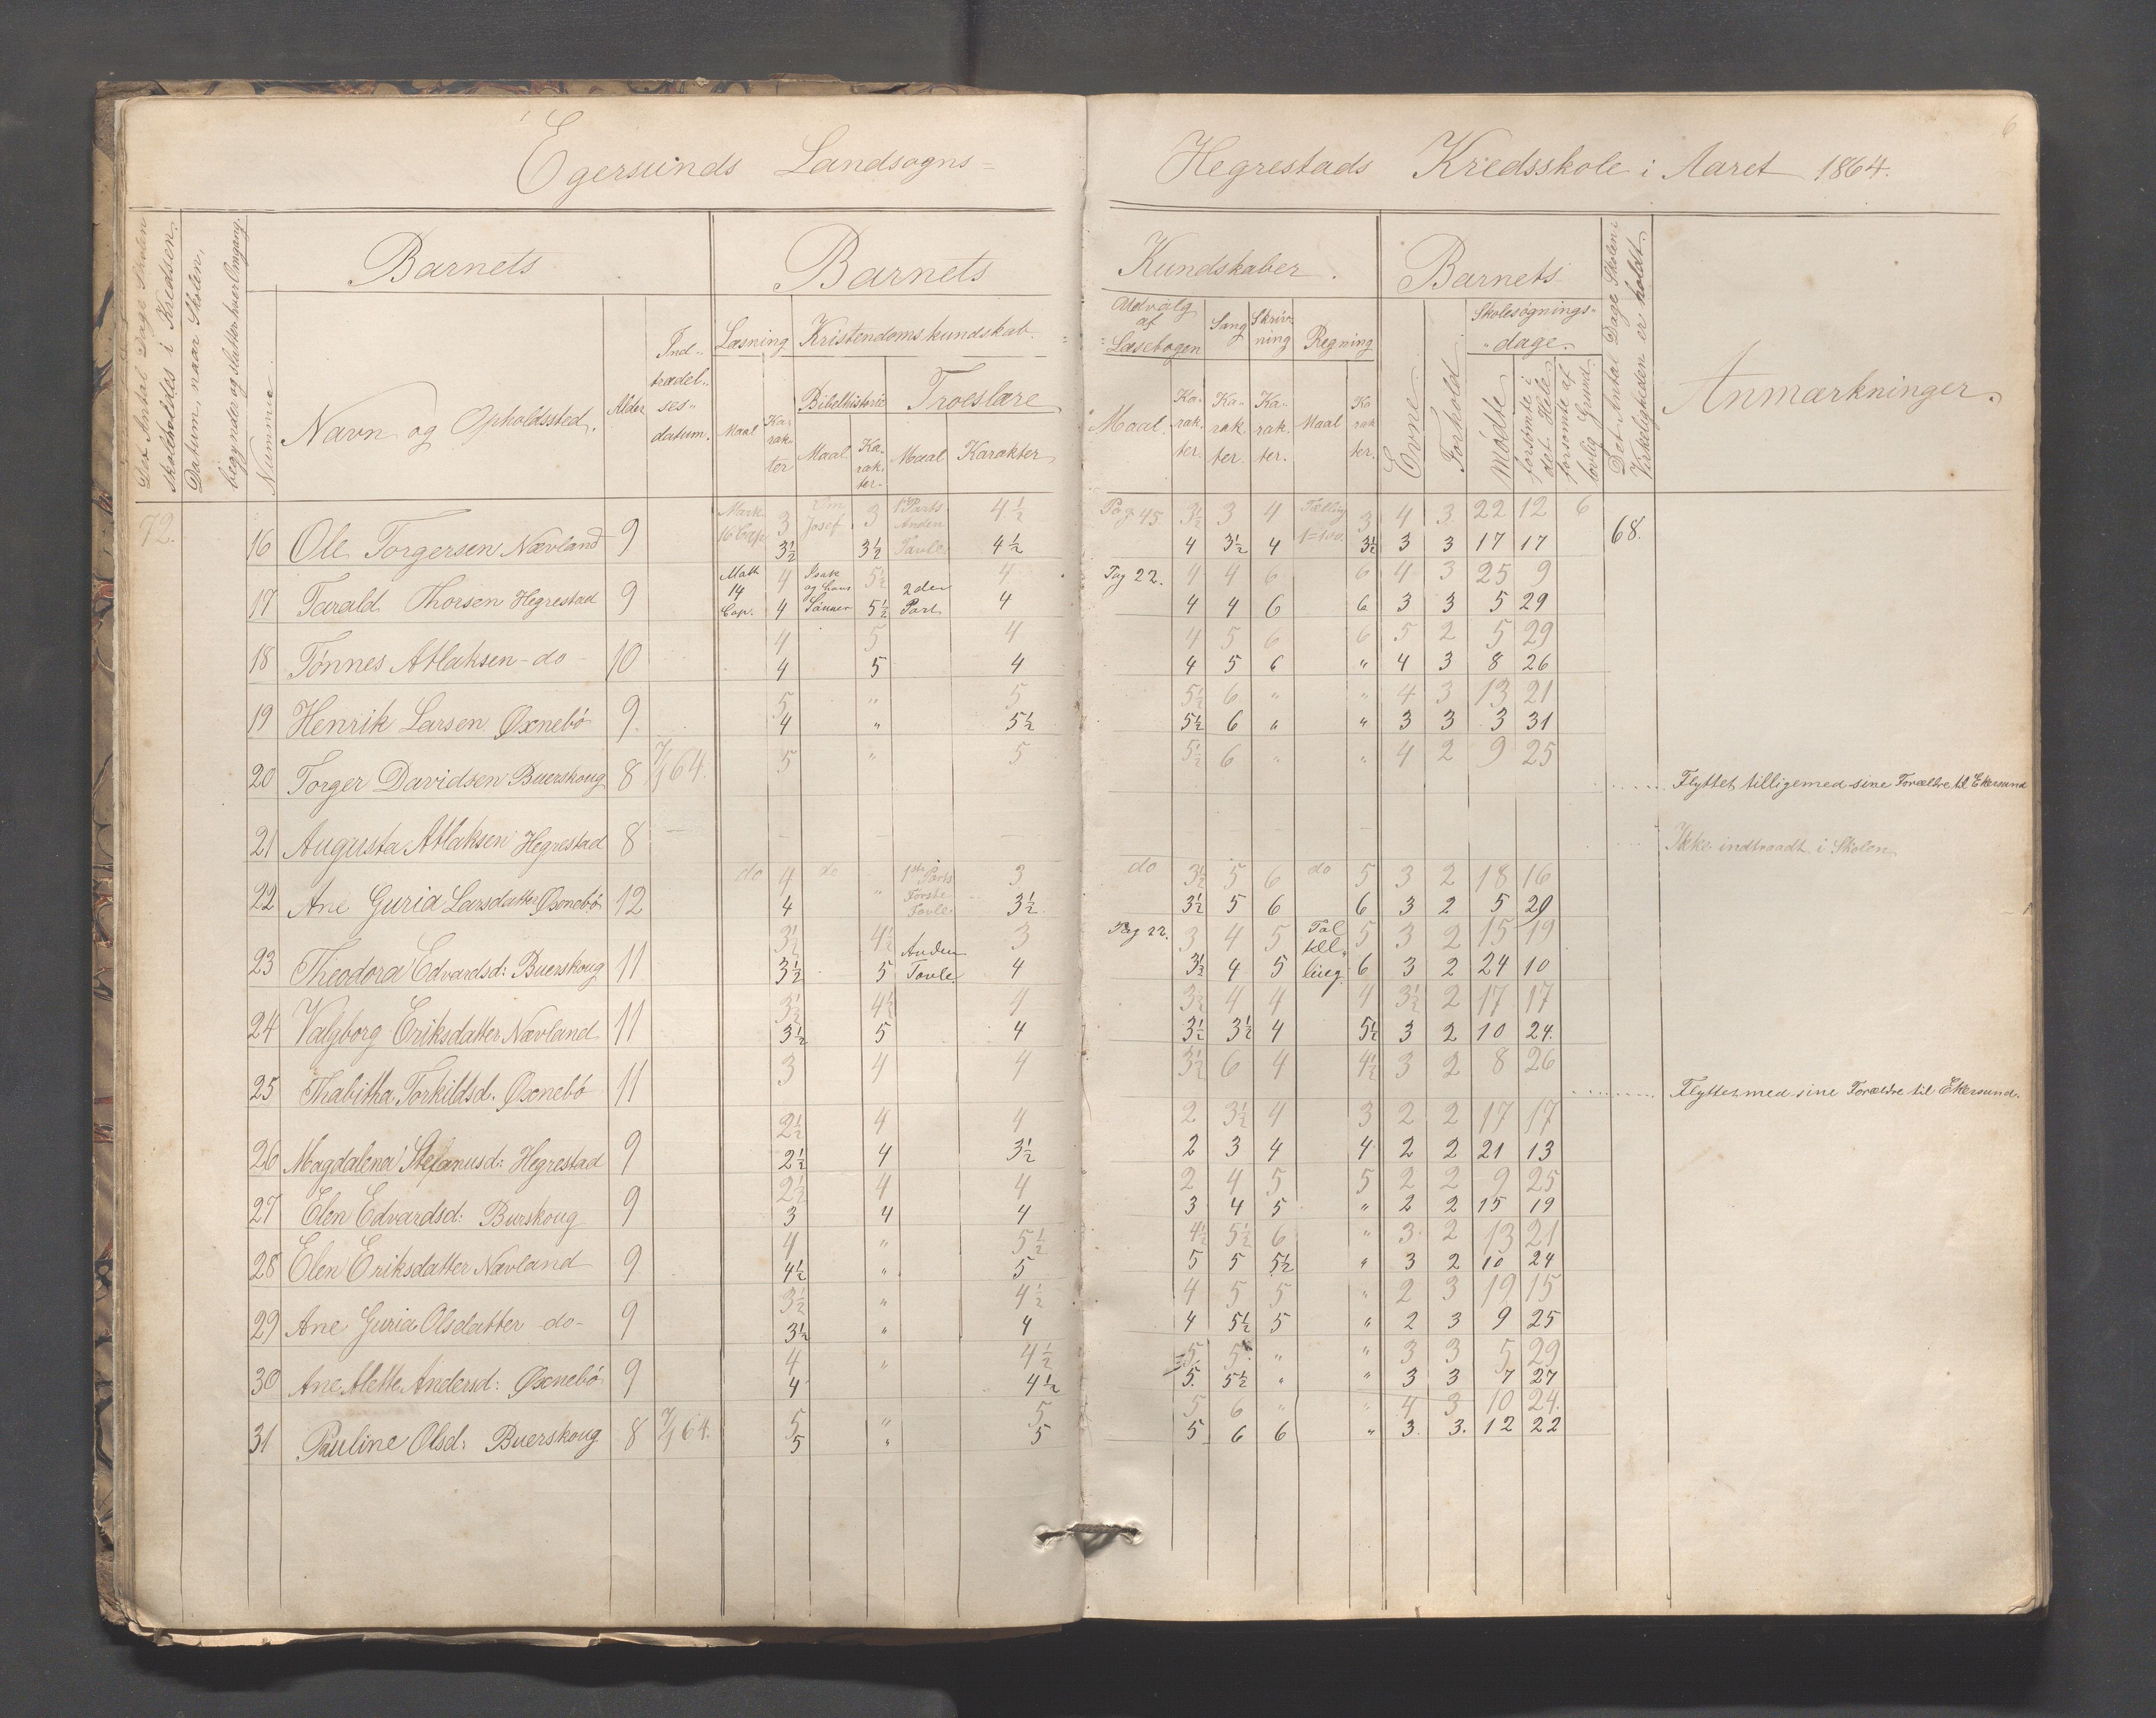 Egersunds Landsogns=
Hegrestads Kredsskole i Aaret 1864.
6
Det Antal Dage Skolen
skal holdes i Kredsen.
Datum, naar Skolen
begynder og slutter hver Omgang.
Nummer
Barnets
Navn og Opholdssted.
Alder
Ind-
trædel-
ses-
datum.
Barnets
Læsning
Kristendomskundskab
Maal
Ka-
rak-
ter
Bibelhistorie
Maal
Ka-
rak-
ter.
Troeslære
Maal
Karakter
Kundskaber.
Udvalg
af
Læsebogen
Maal.
Ka-
rak-
ter.
Sang
Ka-
rak-
ter.
Skriv-
ning
Ka-
rak-
ter.
Regning
Maal
Ka
rak
ter.
Barnets
Evne
Forhold
Skolesøgnings-
dage.
Mødte
forsømte i
det Hele
forsømte af
lovlig Grund
Det Antal Dage Skolen i
Virkeligheden er holdt.
Anmærkninger.
72.
Mark. 3 3 1ste Parts 4½ Pag 45. 3½ 3 4 Tælling 3 4 3 22 12 6
16 Ole Torgersen Nævland 9 16 Cap 3½ Josef 3½ Anden Tavle. 4½ 4 3½ 4 1=100 3½ 3 3 17 17 68.
Math 4 Isak 5½ 4 Pag 22. 4 4 6 6 4 3 25 9
17 Tarald Thorsen Hegrestad 9 14 Cap. 4 og hans Sønner 5½ 2den Part 4 4 4 6 6 3 3 5 29
4 5 4 4 5 6 6 5 2 5 29
18 Tønnes Atlaksen - do - 10 4 5 4 4 5 6 " 4 3 8 26
5 " 5 5½ 6 " " 4 3 13 21
19 Henrik Larsen Øxnebø 9. 4 " 5½ 5½ 6 " " 3 3 3 31
5 " 5 5½ 6 " " 4 2 9 25
20 Torger Davidsen Buerskoug 8 7/1 64. Flyttet tilligemed sine Forældre til Ekersund
21 Augusta Atlaksen Hegrestad 8 — Ikke indtraadt i Skolen
do 4 do 1ste Parts 3 do 3½ 5 6 do 5 3 2 18 16
22 Ane Guria Larsdatter Øxnebø 12 4 " Første Tavle. 3½ 3½ 5 6 6 3 2 5 29
3½ 4½ 3 Pag 22. 3 4 5 Tal 5 3 2 15 19
23 Theodora Edvardsd: Buerskoug 11 3½ 5 Anden Tavle. 4 3½ 4 5 6 3 2 24 10
3½ 4½ 4 3½ 4 4 4 3½ 2 17 17
24 Valgborg Eriksdatter Nævland 11 3½ 5 4 3½ 3½ 4 5½ 3 2 10 24.
3 4 4 3½ 6 4 4½ 3 2 8 26
25 Thabitha Torkildsd. Øxnebø 11 Flyttet med sine Forældre til Ekersund.
2½ 4 4 2 3½ 4 3 2 2 17 17
26 Magdalena Stefanusd: Hegrestad 9 2½ 4 3½ 2 3 4 4 2 2 21 13
2½ 4 4 2 4 5 5 2 2 9 25
27 Elen Edvardsd: Burskoug 9 3 4 4 3 4 5 " 2 2 15 19
4 " 5½ 4½ 5½ 6 " 3 2 13 21
28 Elen Eriksdatter Nævland 9 4½ " 5 5 5 5½ " 3 2 10 24
3½ " 4½ 4 5 5 " 2 3 19 15
29 Ane Guria Olsdatter - do - 9 3½ " 4 4 5½ 5 " 2 3 9 25
4 " 4½ 5 5 " " 3 3 5 29
30 Ane Alette Andersd: Øxnebø 9 4 4½ 5. 5½ " " 3 3 7 27
5 " 5 5 6 " " 4 3 10 24.
31 Pauline Olsd: Buerskoug 8 7/1 64. 5 " 5 5 6 6 " 3. 3. 12 22